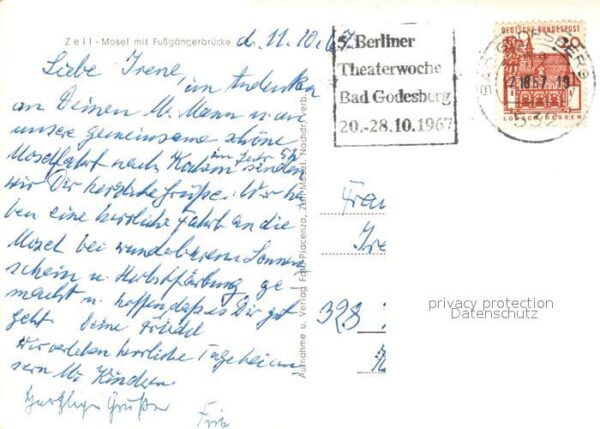 Zell - Mosel mit Fußgängerbrücke
d. 11.10.67
Liebe Irene, im Andenken
an Deinen l. Mann u. an
unsere gemeinsame schöne
Moselfahrt nach im Jahr
wir Dir herzliche Grüße. Wir ha
ben eine herrliche Fahrt an die
Mosel bei wunderbarem Sonnen
schein u. Herbstfärbung ge-
macht u. hoffen, dass es Dir gut
geht Deine Friedel
Wir verleben herrliche Tage bei un-
sern Kindern.
Herzliche Grüße
Fritz
Aufnahme u. Verlag Foto-Piacenza, Zell-Mosel. Nachdr. verb.
5. Berliner
Theaterwoche
Bad Godesberg
20.-28.10.1967
BAD GODESBERG
532
DEUTSCHE BUNDESPOST
LORSCH HESSEN
Frau
Ire
328
privacy protection
Datenschutz